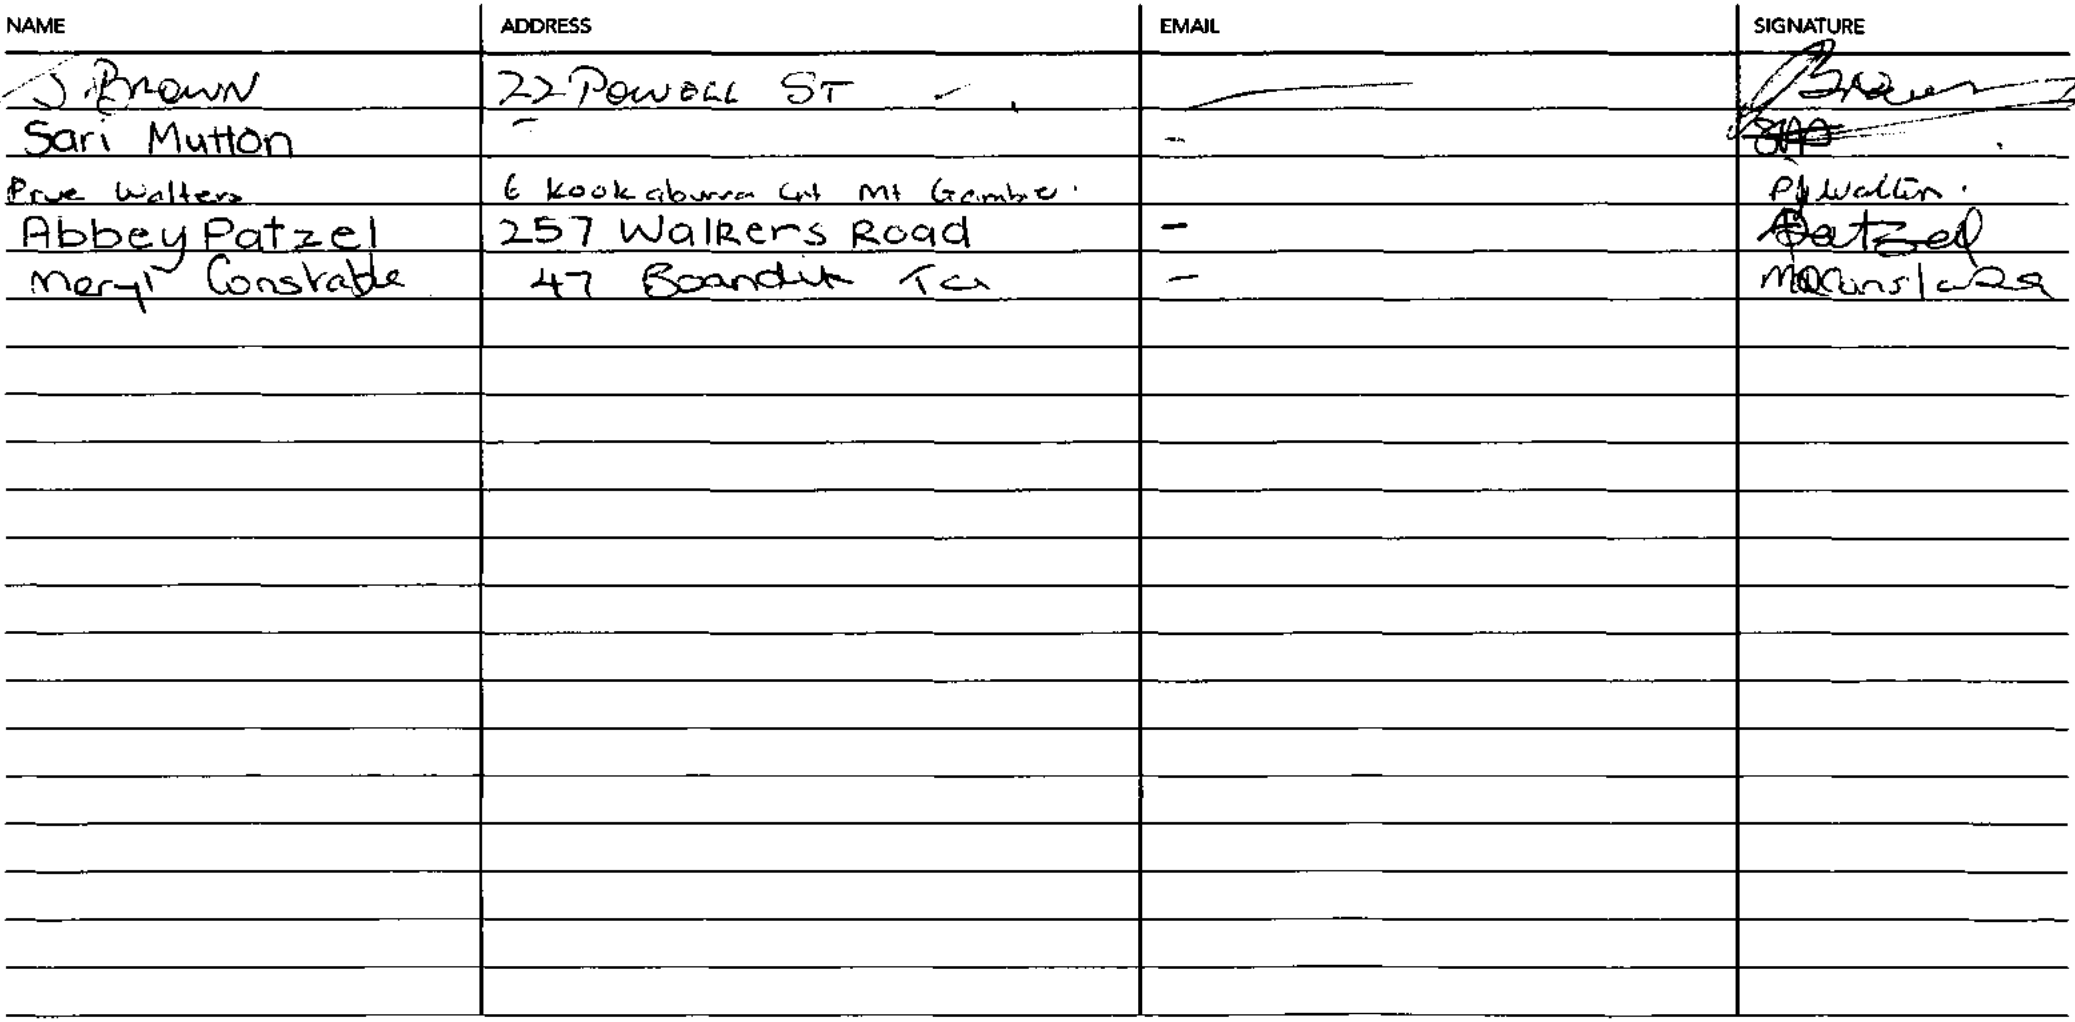 NAME ADDRESS EMAIL SIGNATURE
J Brown 22 Powell ST - Brown
Sari Mutton - -
Prue Walters 6 Kookaburra Crt Mt Gambie. - PJ Walters.
Abbey Patzel 257 Walkers Road - Patzel
Meryl Constable 47 Boandik Tce - M Constable